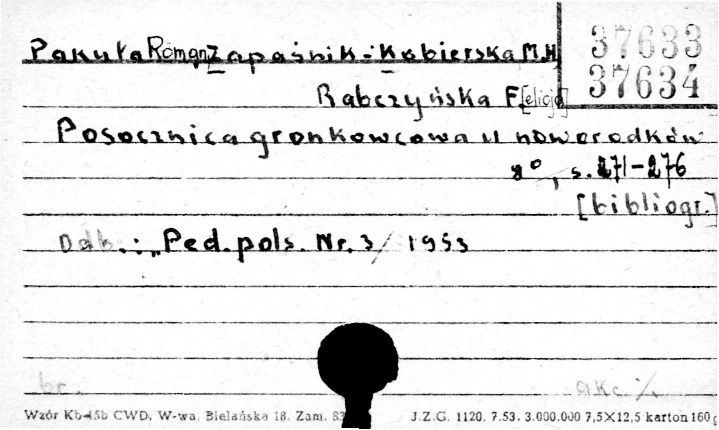 37633
37634
Pakuła Roman Zapaśnik-Kobierska M.H.
Rąbczyńska F[elicja]
Posocznica gronkowcowa u noworodków
8°, s. 271-276
[bibliogr.]
Odb.: „Ped. pols. Nr. 3/ 1953
br. akc.
Wzór Kb-15b CWD, W-wa, Bielańska 18. Zam. J.Z.G. 1120. 7.53. 3.000.000 7,5X12,5 karton 160 g